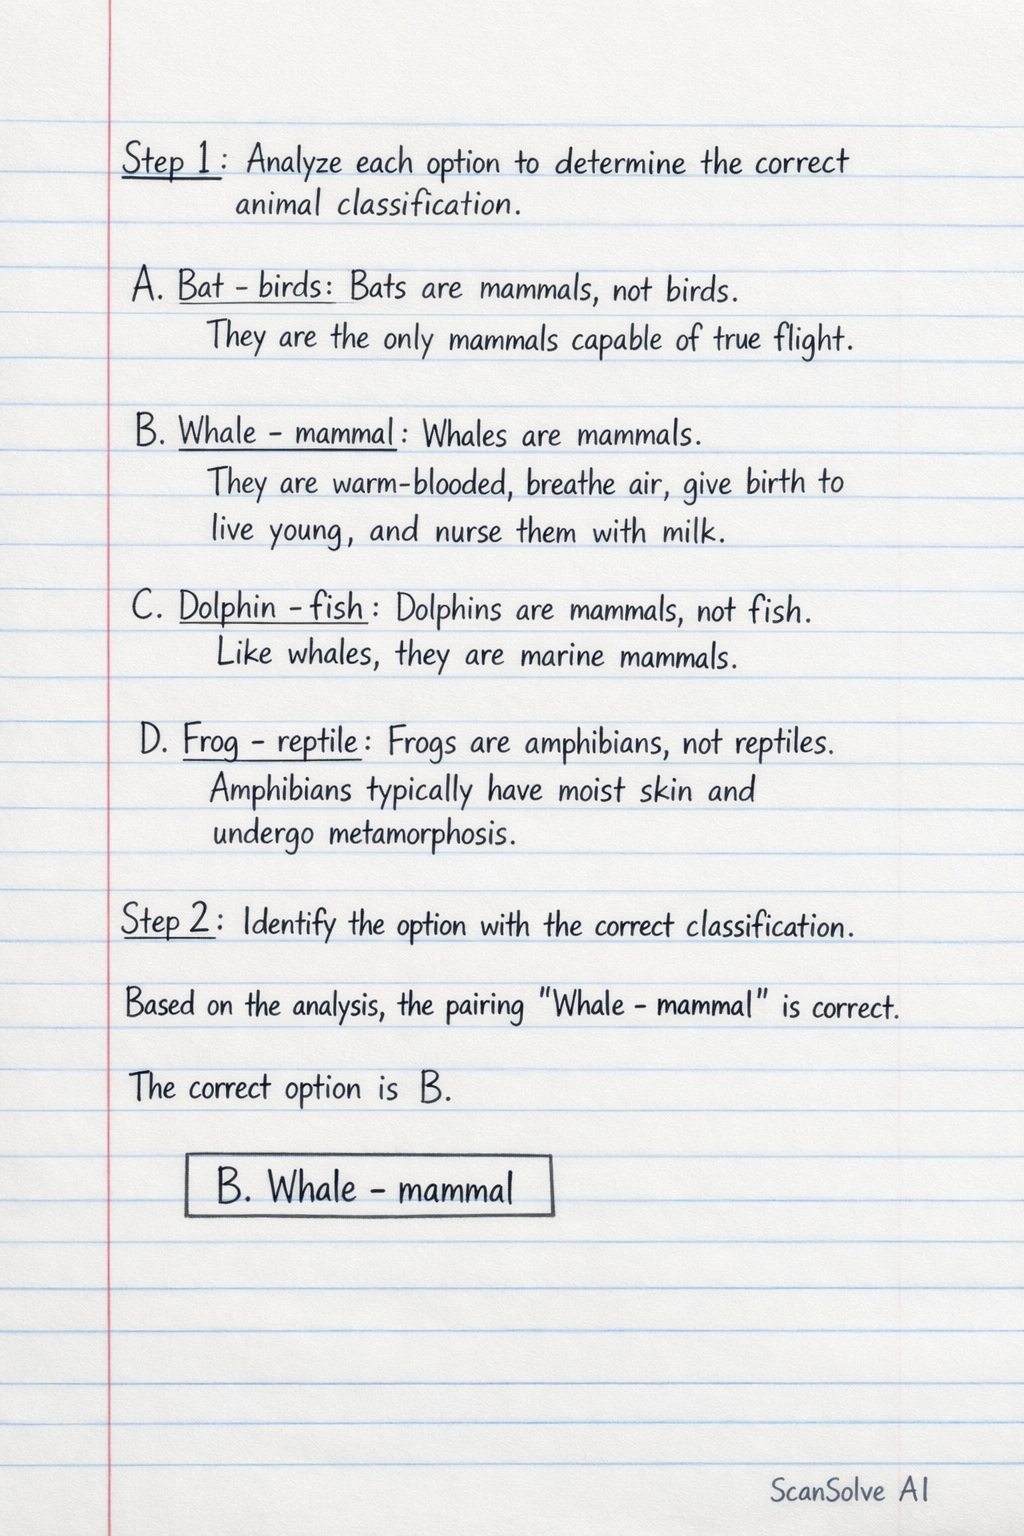 Step 1: Analyze each option to determine the correct
animal classification.
A. Bat - birds: Bats are mammals, not birds.
They are the only mammals capable of true flight.
B. Whale - mammal: Whales are mammals.
They are warm-blooded, breathe air, give birth to
live young, and nurse them with milk.
C. Dolphin - fish: Dolphins are mammals, not fish.
Like whales, they are marine mammals.
D. Frog - reptile: Frogs are amphibians, not reptiles.
Amphibians typically have moist skin and
undergo metamorphosis.
Step 2: Identify the option with the correct classification.
Based on the analysis, the pairing "Whale - mammal" is correct.
The correct option is B.
B. Whale - mammal
ScanSolve AI